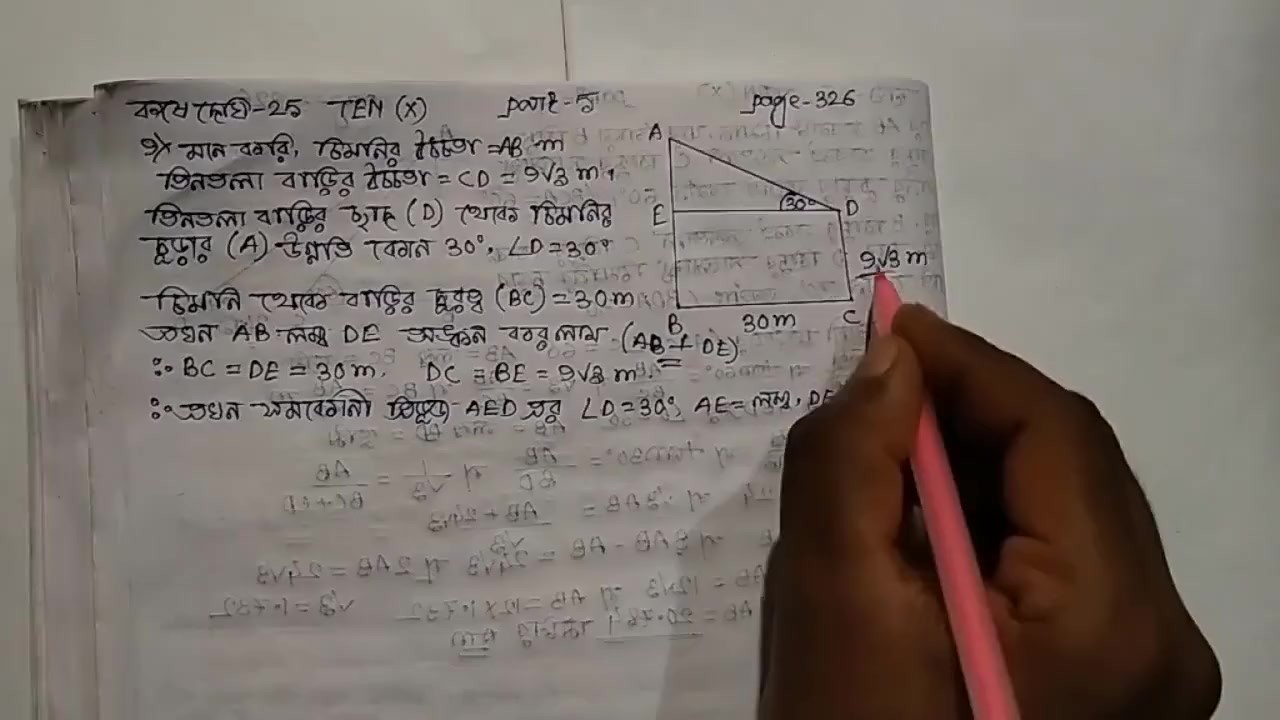 কষে দেখি-25 TEN (X) part-5 page-326
9) মনে করি, চিমনির উচ্চতা = AB m
তিনতলা বাড়ির উচ্চতা = CD = 9√3 m,
তিনতলা বাড়ির ছাদ (D) থেকে চিমনির
চূড়ার (A) উন্নতি কোন 30°, ∠D = 30°
চিমনি থেকে বাড়ির দূরত্ব (BC) = 30 m
এখন AB লম্ব DE অঙ্কন করলাম (AB ⊥ DE)
∴ BC = DE = 30 m, DC = BE = 9√3 m
∴ এখন সমকোণী ত্রিভুজ AED এর ∠D = 30°, AE = লম্ব, DE
A
30°
E
D
9√3 m
B
30 m
C